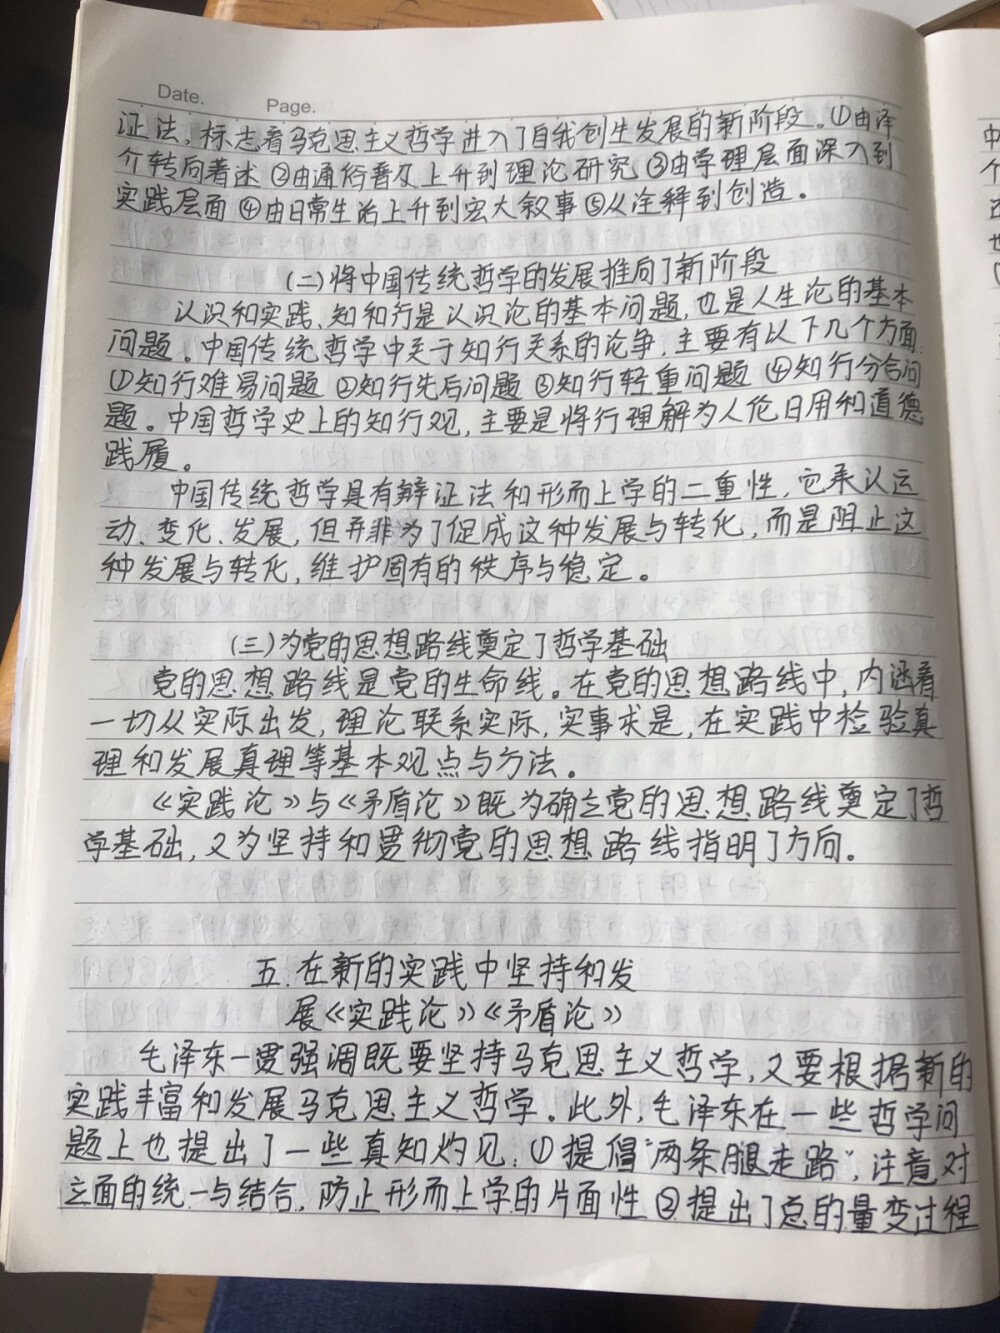 Date. Page.
证法，标志着马克思主义哲学进入了自我创生发展的新阶段。①由译
介转向著述 ②由通俗普及上升到理论研究 ③由学理层面深入到
实践层面 ④由日常生活上升到宏大叙事 ⑤从注释到创造。
(二)将中国传统哲学的发展推向了新阶段
认识和实践、知和行是认识论的基本问题，也是人生论的基本
问题。中国传统哲学中关于知行关系的论争，主要有以下几个方面：
①知行难易问题 ②知行先后问题 ③知行轻重问题 ④知行分合问
题。中国哲学史上的知行观，主要是将行理解为人伦日用和道德
践履。
中国传统哲学具有辩证法和形而上学的二重性，它承认运
动、变化、发展，但并非为了促成这种发展与转化，而是阻止这
种发展与转化，维护固有的秩序与稳定。
(三)为党的思想路线奠定了哲学基础
党的思想路线是党的生命线。在党的思想路线中，内涵着
一切从实际出发，理论联系实际，实事求是，在实践中检验真
理和发展真理等基本观点与方法。
《实践论》与《矛盾论》既为确立党的思想路线奠定了哲
学基础，又为坚持和贯彻党的思想路线指明了方向。
五.在新的实践中坚持和发
展《实践论》《矛盾论》
毛泽东一贯强调既要坚持马克思主义哲学，又要根据新的
实践丰富和发展马克思主义哲学。此外，毛泽东在一些哲学问
题上也提出了一些真知灼见：①提倡“两条腿走路”，注意对
立面的统一与结合，防止形而上学的片面性 ②提出了总的量变过程
中
个
也